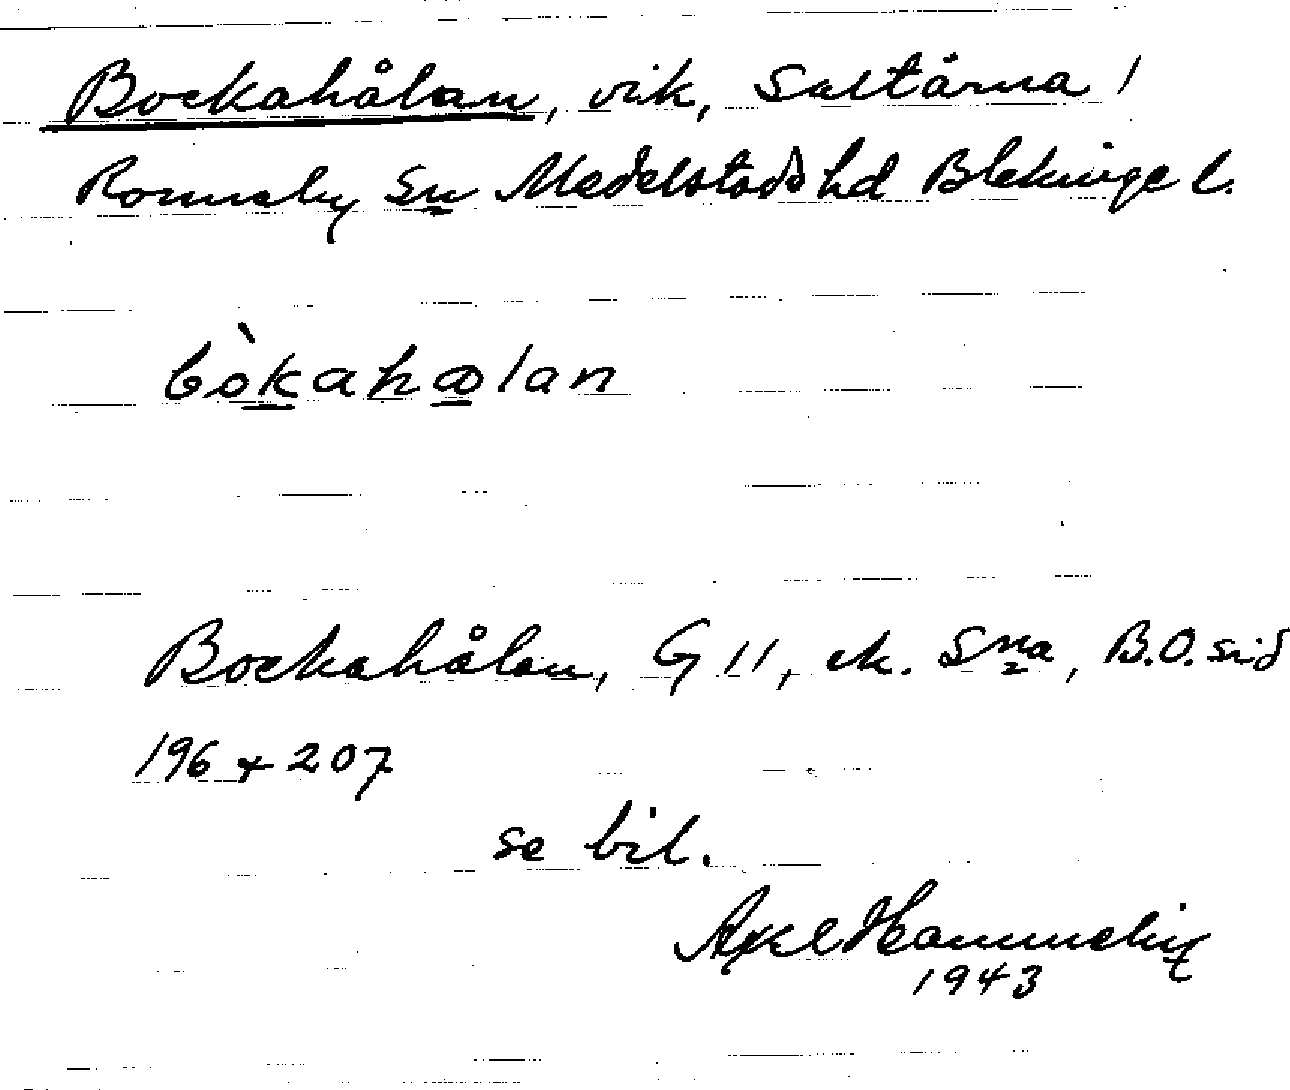 Bockahålan, vik, Saltärna /
Ronneby Sn Medelstads hd Blekinge l.
bòkahålan
Bockahålan, G 11, ek. Sna, B.O. sid
196 + 207
se bil.
Axel
1943